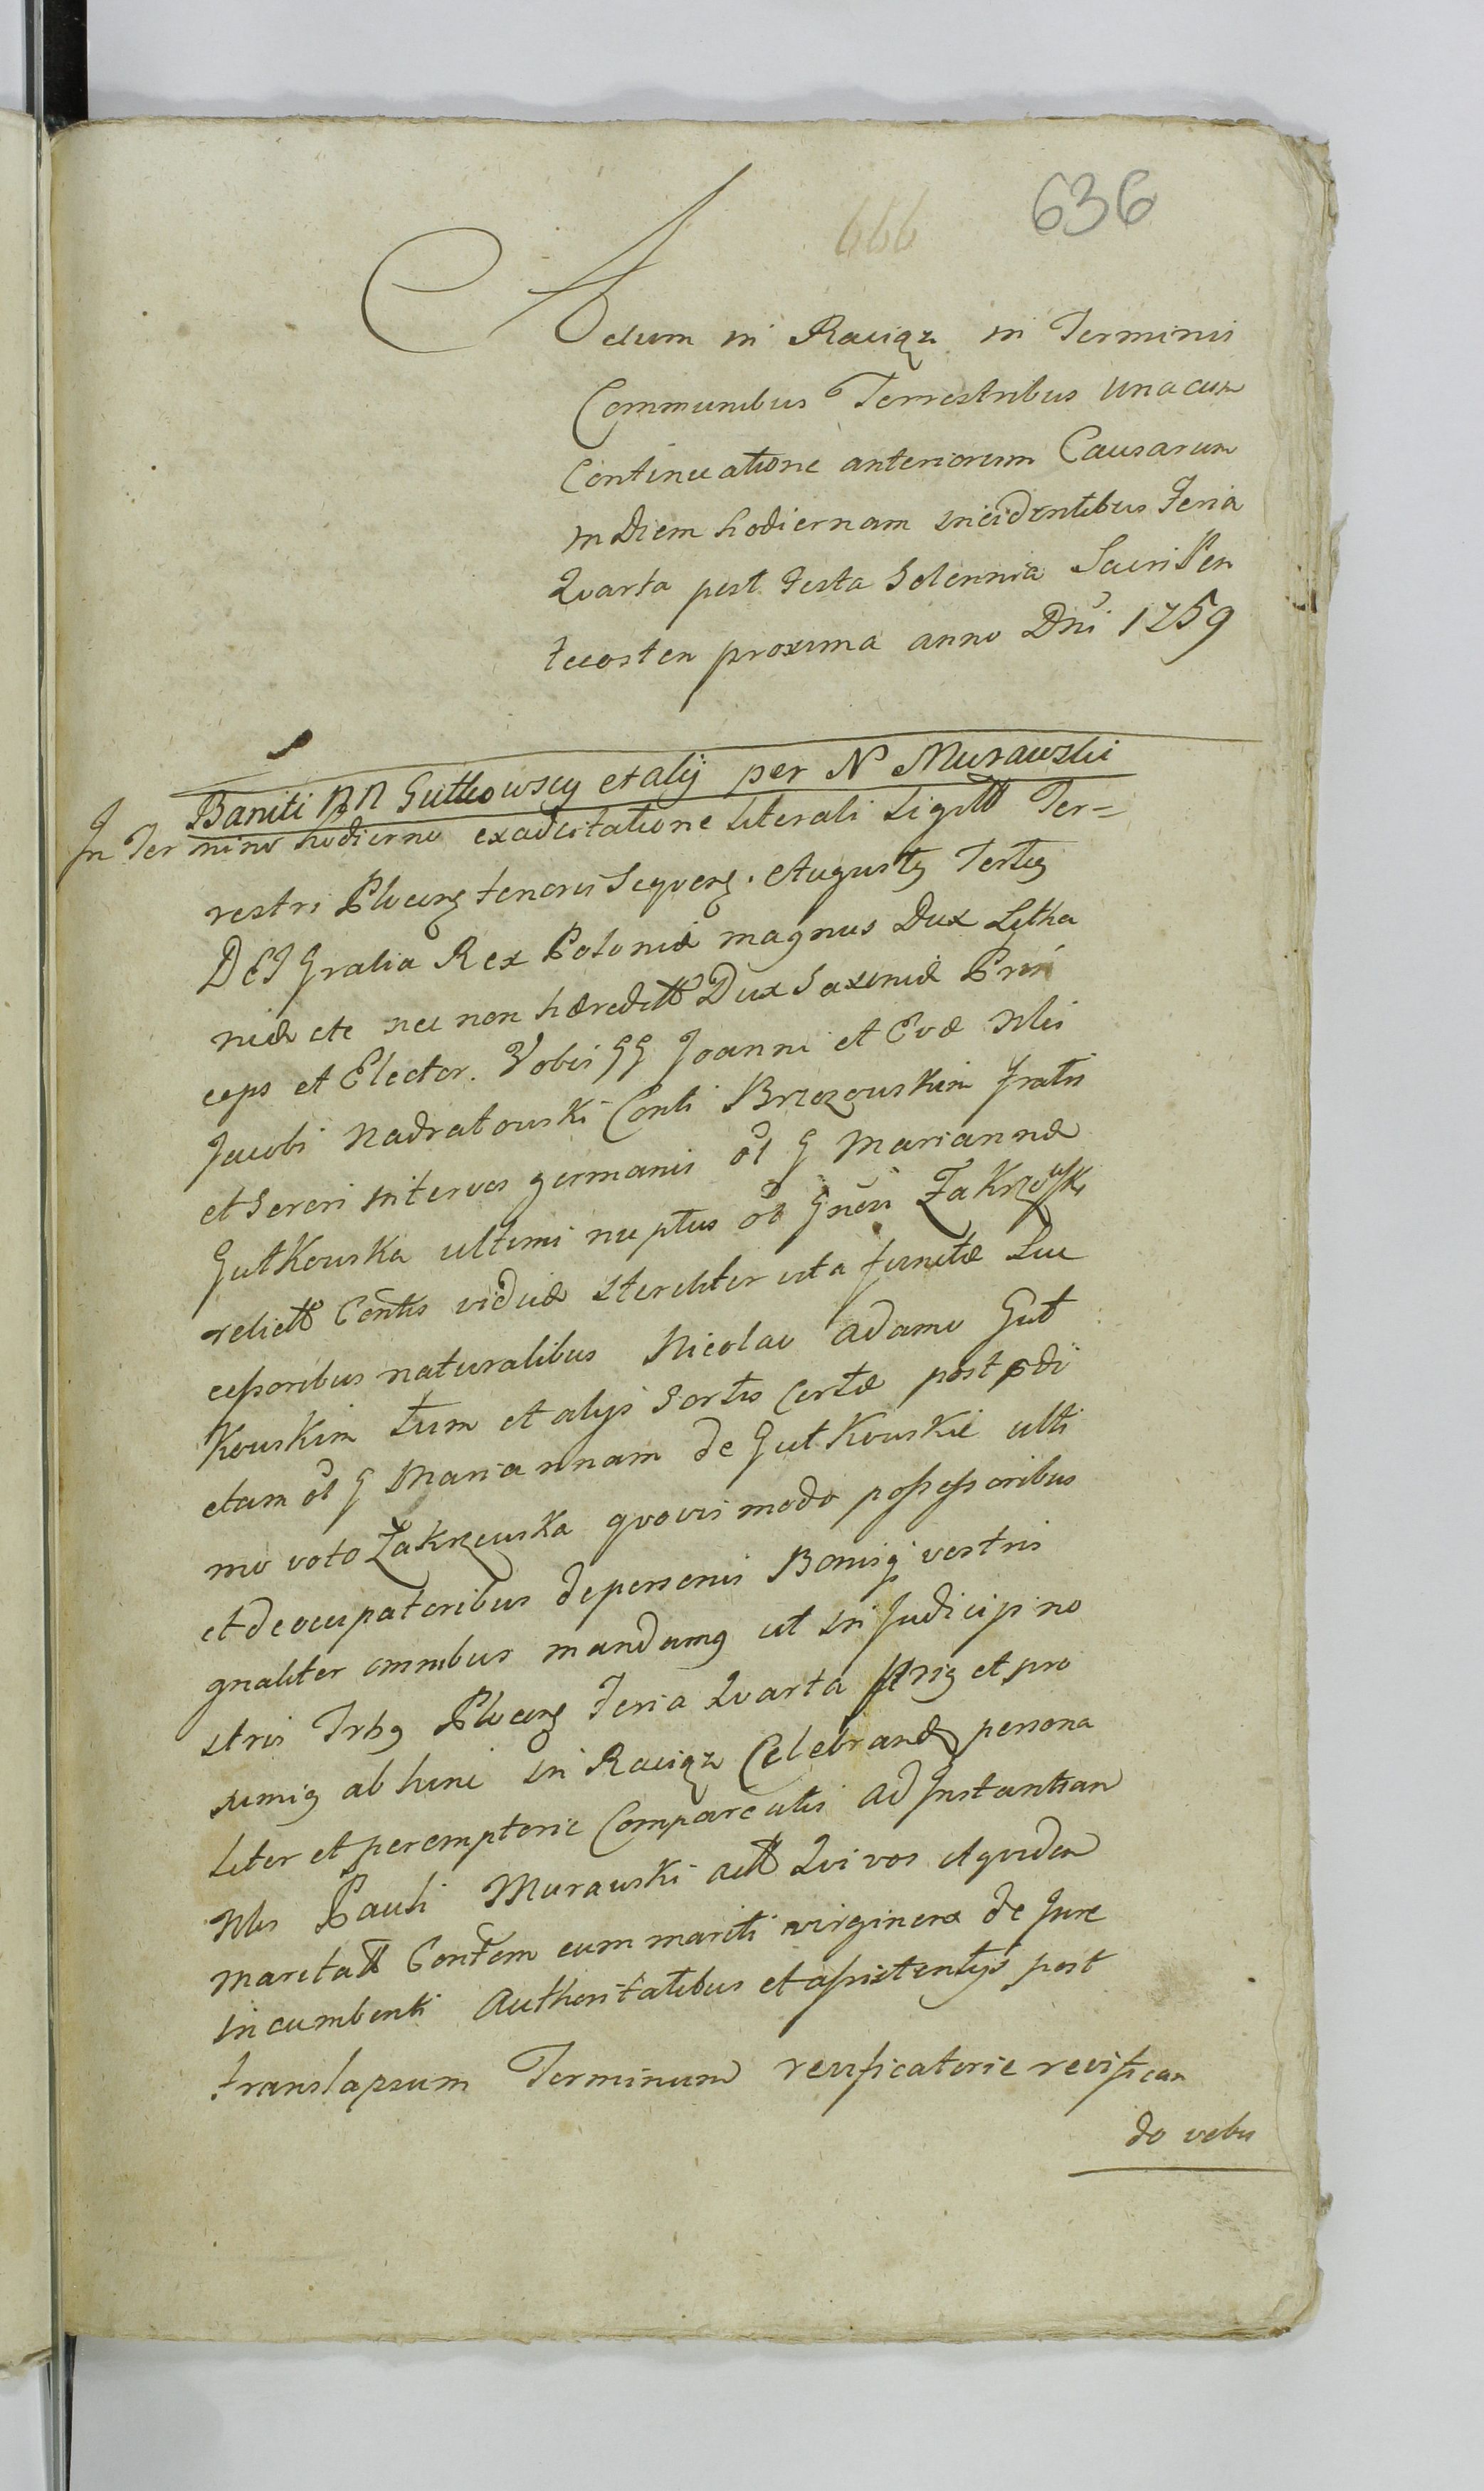 636
666
Actum in Raciąz in Terminis
Communibus Terrestribus unacum
Continuatione anteriorum Causarum
in Diem hodiernam incidentibus Feria
Quarta post Festa Solennia Sacri Pen
tecosten proxima anno Dni 1759
Baniti NN Gutkowscy et alij per N Murawski
In Termino hodierno ex adcitatione literali sigill Ter=
restri Plocens tenoris Sequens. Augusts Tertis
DEI Gratia Rex Poloniæ magnus Dux Litha
niæ etc nec non hæredit Dux Saxoniæ Prin
ceps et Elector. Vobis GG Joanni et Evæ Nlis
Jacobi Nadratowski Conti Brzozowskim fratri
et Sorori inter vos germanis ol G Mariannæ
Gutkowska ultimi nuptus ol Gnësi Zakrzewski
relict Contis viduæ steriliter vita functæ Suc
cessoribus naturalibus Nicolao Adamo Gut
kowskim tum et alijs Sortis Certæ post prædi
ctam ol G Mariannam de Gutkowskie ulti
mo voto Zakrzewska quovis modo possessoribus
et de occupatoribus de personis Bonisq vestris
gnaliter omnibus mandamus ut in Judicijs no
stris Trbs Plocens Feria Quarta et pro
ximis ab hinc in Raciąz Celebrand persona
liter et peremptorie Compareatis ad Instantiam
Nlis Pauli Murawski act Qui vos et quidem
maritat Contem cum mariti virginem de Jure
incumbenti Authoritatibus et assistentijs post
translapsum Terminum
do vobis